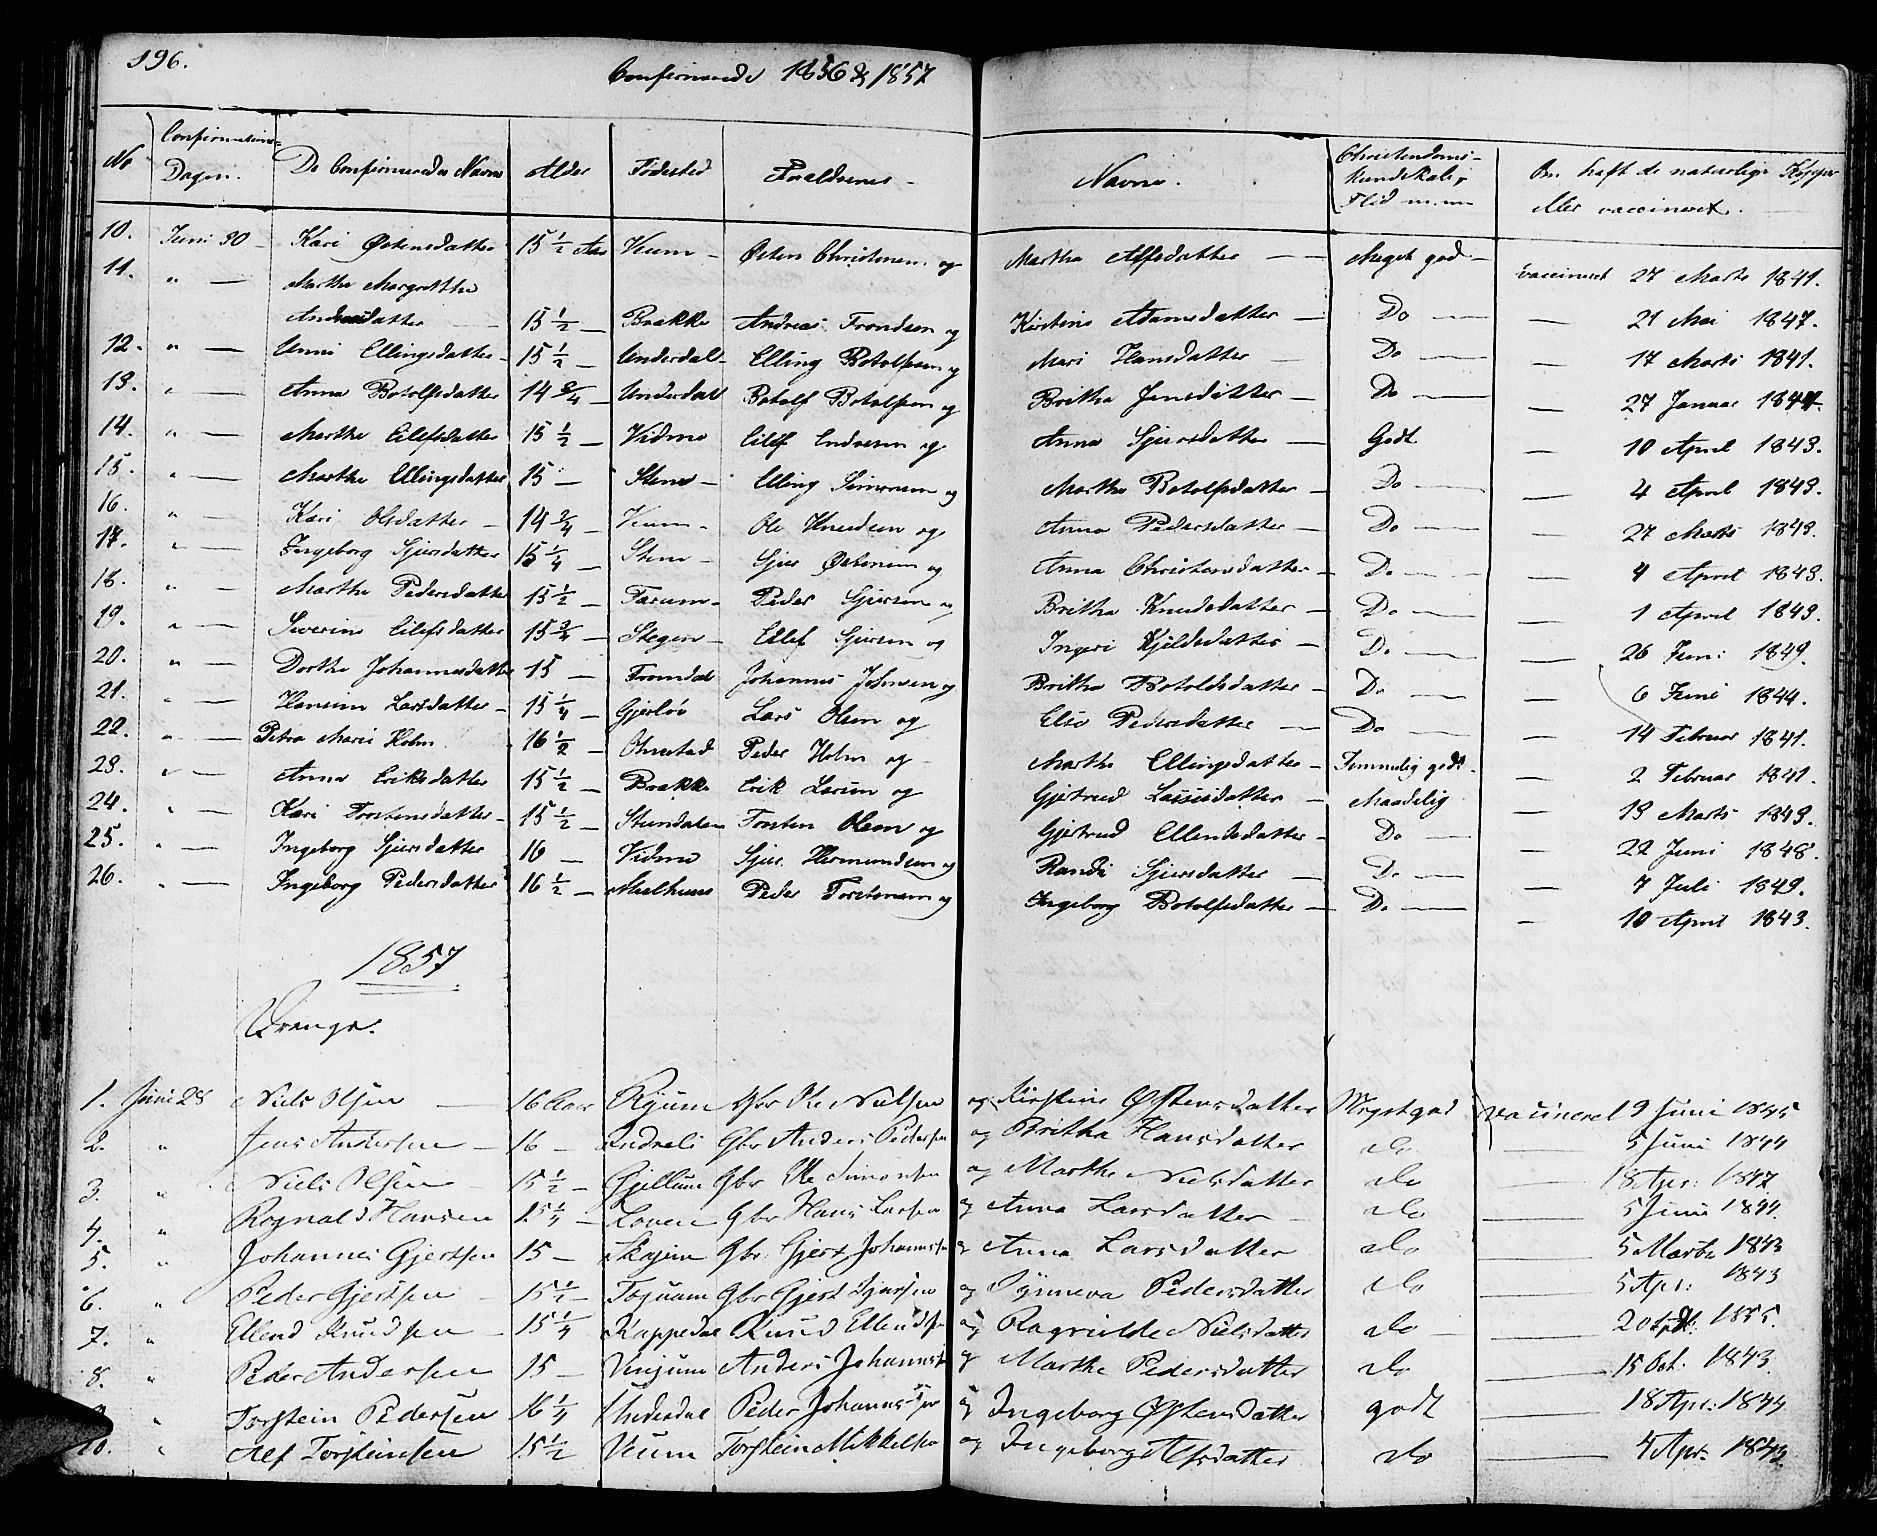 196.
Confirmerede 1856 & 1857
No Confirmations- Dagen. De Confirmeredes Navne Alder Fødested Forældrenes Navne. Christendoms- kundskab, Flid m.m. Om haft de naturlige Kopper eller vaccineret.
10. Juni 30 Kari Østensdatter 15 1/2 Aar Veum Østen Christensen og Martha Alfsdatter Meget god vaccineret 27 Marts 1841.
11. " Marthe Margrethe
Andreasdatter 15 1/2 Brække Andreas Trondsen og Kirstine Adamsdatter Do 21 Mai 1847.
12. " Unni Ellingsdatter 15 1/2 Underdal Elling Botolfsen og Mari Hansdatter Do 17 Marts 1841.
13. " Anna Botolfsdatter 14 3/4 Underdal Botolf Botolfsen og Britha Jensdatter Do 27 Januar
14. " Marthe Eilefsdatter 15 1/2 Vidme Eilef Endresen og Anna Sjursdatter Godt 10 April 1843.
15. " Marthe Ellingsdatter 15 Stene Elling Simonsen og Martha Botolfsdatter Do 4 April 1843.
16. " Kari Olsdatter 14 3/4 Veum Ole Knudsen og Anna Pedersdatter Do 27 Marts 1843.
17. " Ingeborg Sjursdatter 15 1/4 Stene Sjur Østensen og Anna Christensdatter Do 4 April 1843.
18. " Marthe Pedersdatter 15 1/2 Peder Sjursen og Britha Knudsdatter Do 1 April 1843.
19. " Severine Eilefsdatter 15 3/4 Stegen Eilef Sjursen og Ingeri Kjeldsdatter Do 26 Juni 1849.
20. " Dorthe Johannesdatter 15 Fromdal Johannes Johnsen og Britha Botolfsdatter Do 6 Juni 1844.
21. " Hansine Larsdatter 15 1/4 Gjerløv Lars Olsen og Else Pedersdatter Do 14 Februar 1841.
22. " Petra Marie Holm 16 1/2 Ornestad Peder Holm og Marthe Ellingsdatter Temmelig godt 2 Februar 1841.
23. " Anna Eriksdatter 15 1/2 Brække Erik Larsen og Gjertrud Lassesdatter Maadelig 13 Marts 1843.
24. " Kari Torstensdatter 15 1/2 Stundalen Torsten Olsen og Gjertrud Ellendsdatter Do 22 Juni 1848.
25. " Ingeborg Sjursdatter 16 Vidme Sjur Hermundsen og Randi Sjursdatter Do 7 Juli 1849.
26. " Ingeborg Pedersdatter 16 1/2 Melhuus Peder Torstensen og Ingeborg Botolfsdatter Do 10 April 1843.
1857
Drenge.
1. Juni 28 Niels Olsen 16 Aar Ryum Gbr Ole Nielsen og Kirstine Østensdatter Megetgod vaccineret 9 Juni 1845
2. " Jens Andersen 16 Indreli Gbr Anders Pedersen og Britha Hansdatter do 5 Juni 1844
3. " Niels Olsen 15 1/2 Gjellum Gbr Ole Simonsen og Marthe Nielsdatter do 18 Apr: 1847
4. " Rognald Hansen 15 1/4 Loven Gbr Hans Larsen og Anna Larsdatter do 5 Juni 1844.
5. " Johannes Gjertsen 15 Skajem Gbr: Gjert Johannesen og Anna Larsdatter do 5 Marts 1843
6. " Peder Gjertsen 15 1/2 Gbr Gjert Sjursen og Synneva Pedersdatter do 5 Apr: 1843
7. " Ellend Knudsen 15 1/4 Kappedal Knud Ellendsen og Ragnilde Nielsdatter do 20 1855.
8. " Peder Andersen 15 Vinjum Anders Johannesen og Marthe Pedersdatter do 15 Oct: 1843
9. " Torstein Pedersen 16 1/4 Underdal Peder Johannesen og Ingeborg Østensdatter godt 18 Apr: 1844
10. " Alf Torsteinsen 15 1/2 Veum Torstein Mikkelsen og Ingeborg Alfsdatter do 4 Apr. 1843.